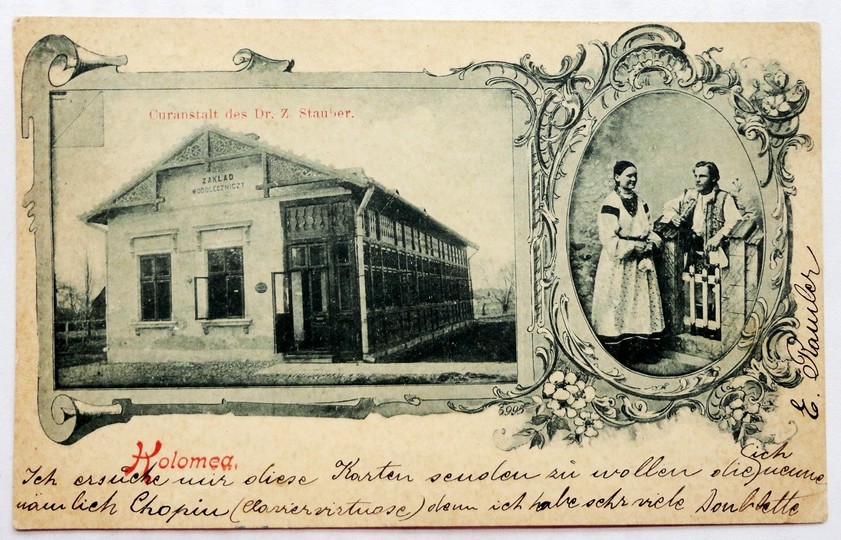 Curanstalt des Dr. Z. Stauber.
ZAKŁAD
WODOLECZNICZY
6995
Kolomea.
E. Stauber
(ich
Ich ersuche mir diese Karten senden zu wollen die) nenne
nämlich Chopin (Claviervirtuose) denn ich habe sehr viele Doublette